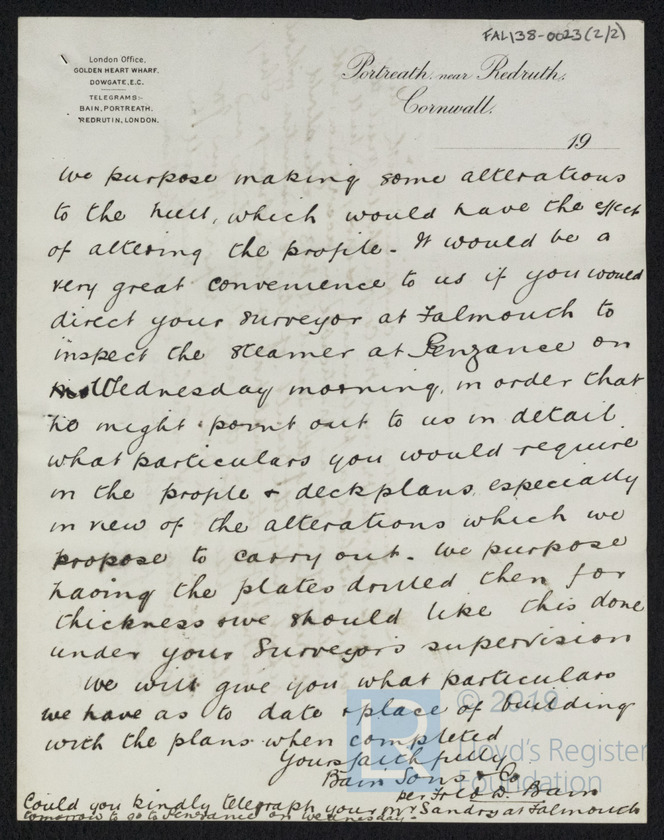 FAL138-0023(2/2)
London Office,
GOLDEN HEART WHARF,
DOWGATE, E.C.
TELEGRAMS:-
BAIN, PORTREATH;
REDRUTIN, LONDON.
Portreath, near Redruth,
Cornwall,
19
We purpose making some alterations
to the hull, which would have the effect
of altering the profile. It would be a
very great convenience to us if you would
direct your Surveyor at Falmouth to
inspect the steamer at Penzance on
Wednesday morning, in order that
he might point out to us in detail
what particulars you would require
in the profile & deckplans especially
in view of the alterations which we
propose to carry out. We purpose
having the plates drilled then for
thickness & we should like this done
under your Surveyors supervision
We will give you what particulars
we have as to date & place of building
with the plans when completed
Yours faithfully
Bain Sons & Co
per Fred D. Bain
Could you kindly telegraph your Mr Sandry at Falmouth
tomorrow to go to Penzance on Wednesday.
© 2019
Lloyd's Register
Foundation